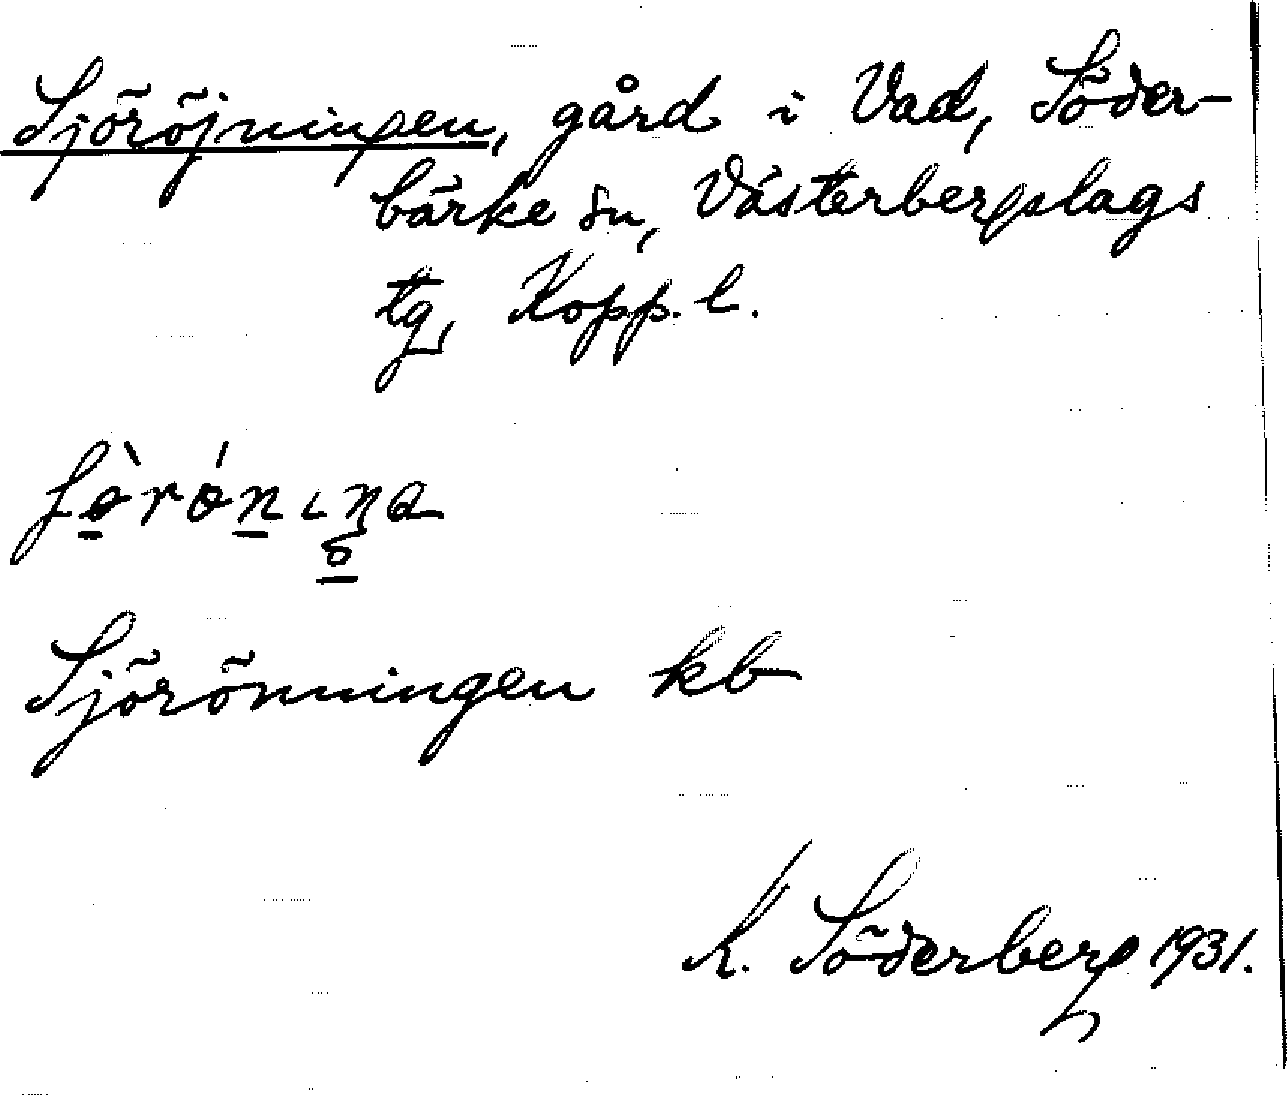 Sjöröjningen, gård i Vad, Söder-
bärke sn, Västerbergslags
tg, Kopp. l.
Sjörönningen kb
K. Söderberg 1931.